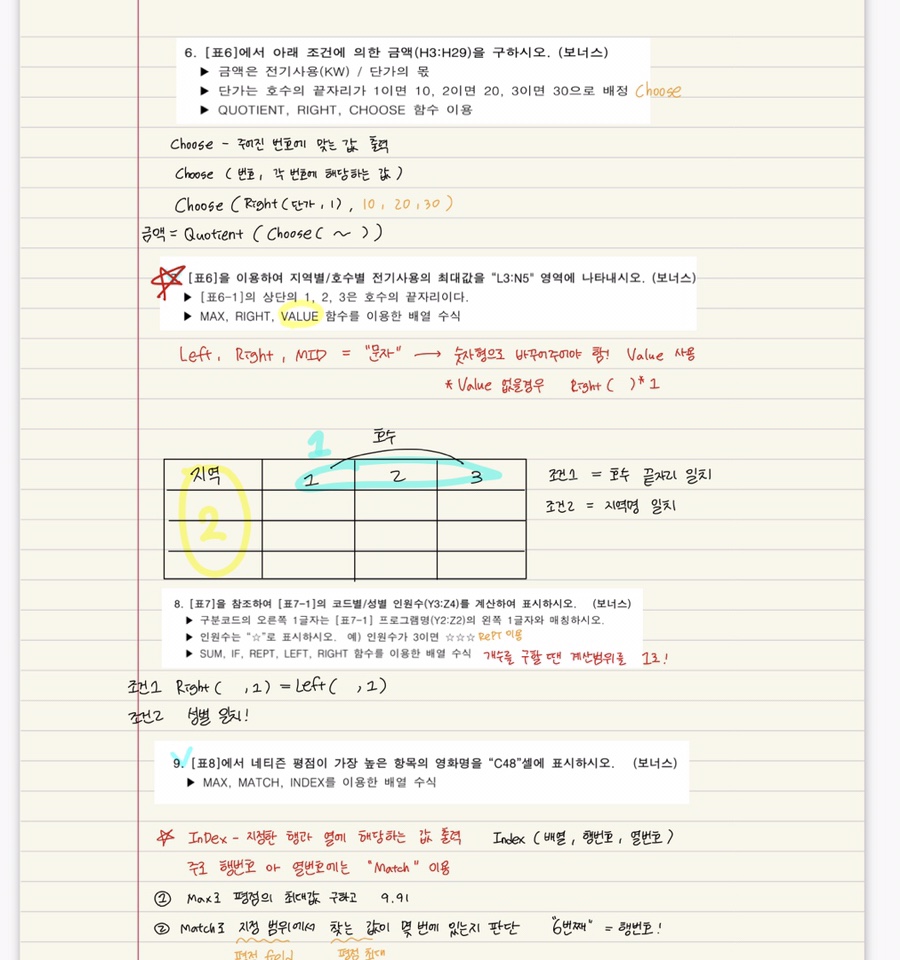 6. [표6]에서 아래 조건에 의한 금액(H3:H29)을 구하시오. (보너스)
▶ 금액은 전기사용(KW) / 단가의 몫
▶ 단가는 호수의 끝자리가 1이면 10, 2이면 20, 3이면 30으로 배정 Choose
▶ QUOTIENT, RIGHT, CHOOSE 함수 이용
Choose - 주어진 번호에 맞는 값 출력
Choose ( 번호, 각 번호에 해당하는 값 )
Choose ( Right ( 단가, 1 ), 10, 20, 30 )
금액 = Quotient ( Choose ( ~ ) )
[표6]을 이용하여 지역별/호수별 전기사용의 최대값을 "L3:N5" 영역에 나타내시오. (보너스)
▶ [표6-1]의 상단의 1, 2, 3은 호수의 끝자리이다.
▶ MAX, RIGHT, VALUE 함수를 이용한 배열 수식
Left, Right, MID = "문자" → 숫자형으로 바꾸어주어야 함! Value 사용
* Value 없을경우 Right ( ) * 1
1 호수
지역 1 2 3
2
조건1 = 호수 끝자리 일치
조건2 = 지역명 일치
8. [표7]을 참조하여 [표7-1]의 코드별/성별 인원수(Y3:Z4)를 계산하여 표시하시오. (보너스)
▶ 구분코드의 오른쪽 1글자는 [표7-1] 프로그램명(Y2:Z2)의 왼쪽 1글자와 매칭하시오.
▶ 인원수는 "☆"로 표시하시오. 예) 인원수가 3이면 ☆☆☆ REPT 이용
▶ SUM, IF, REPT, LEFT, RIGHT 함수를 이용한 배열 수식 개수를 구할 땐 계산범위를 1로!
조건1 Right ( , 1 ) = Left ( , 1 )
조건2 성별 일치!
9. [표8]에서 네티즌 평점이 가장 높은 항목의 영화명을 "C48"셀에 표시하시오. (보너스)
▶ MAX, MATCH, INDEX를 이용한 배열 수식
☆ InDex - 지정한 행과 열에 해당하는 값 출력 Index ( 배열, 행번호, 열번호 )
주로 행번호 or 열번호에는 "Match" 이용
① Max로 평점의 최대값 구하고 9.91
② Match로 지정 범위에서 찾는 값이 몇 번에 있는지 판단 "6번째" = 행번호!
평점 field 평점 최대